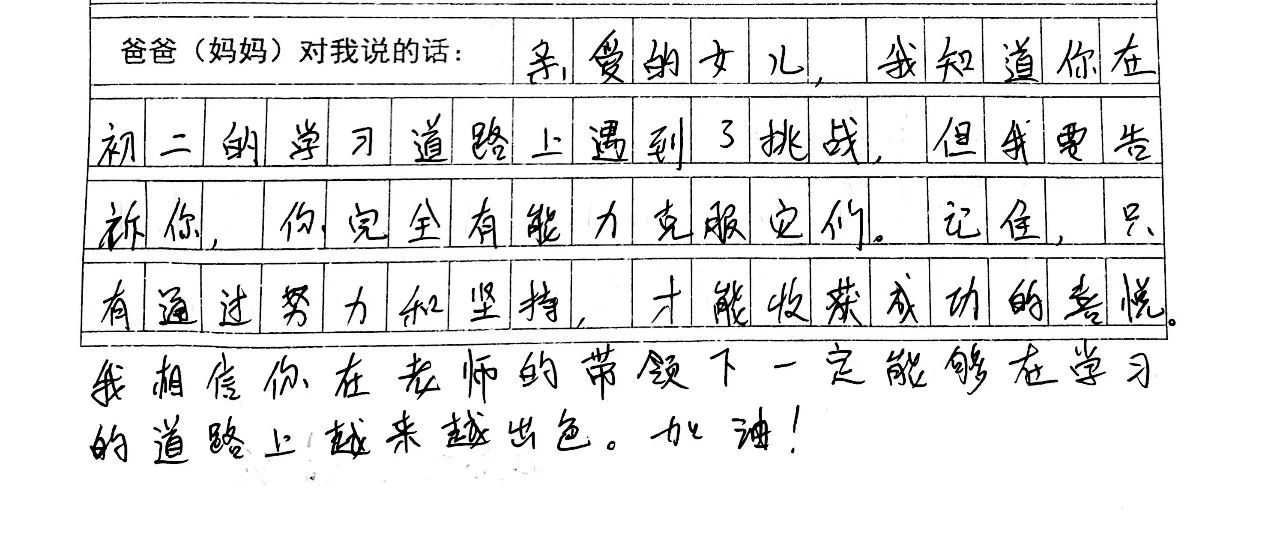 爸爸（妈妈）对我说的话：亲爱的女儿，我知道你在
初二的学习道路上遇到了挑战，但我要告
诉你，你完全有能力克服它们。记住，只
有通过努力和坚持，才能收获成功的喜悦。
我相信你在老师的带领下一定能够在学习
的道路上越来越出色。加油！